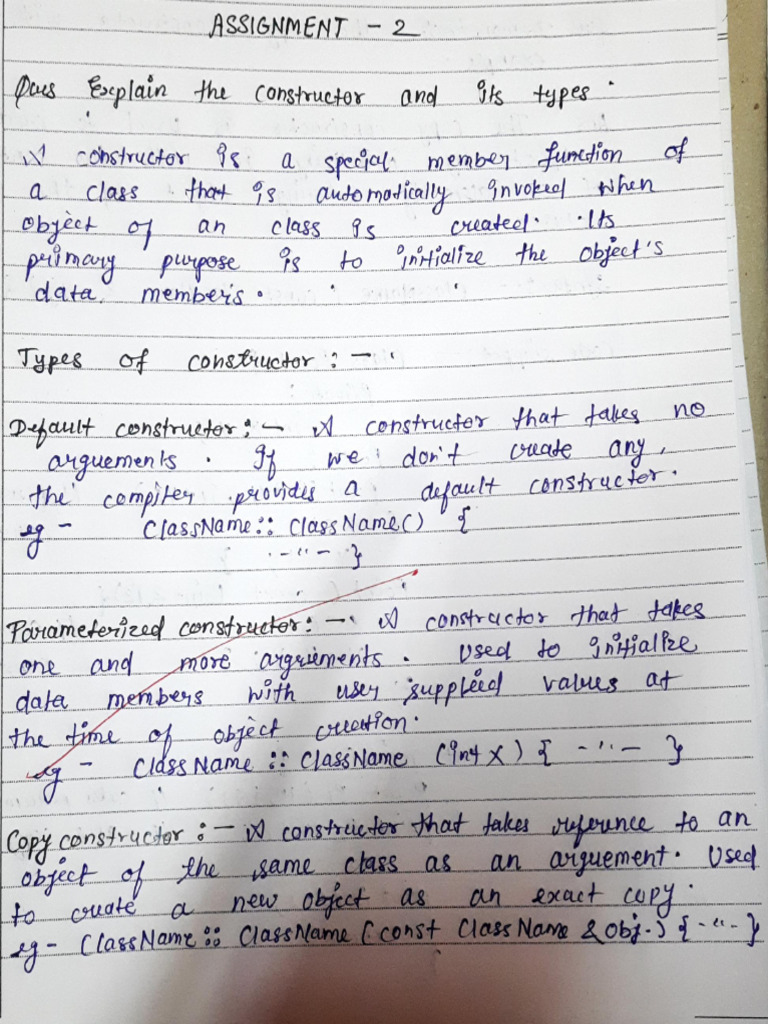 ASSIGNMENT - 2
Ques Explain the constructor and its types.
A constructor is a special member function of
a class that is automatically invoked when
object of an class is created. Its
primary purpose is to initialize the object's
data members.
Types of constructor : -
Default constructor : - A constructor that takes no
arguements. If we don't create any,
the compiler provides a default constructor.
eg - ClassName :: ClassName() {
- " - }
Parameterized constructor : - A constructor that takes
one and more arguements. Used to initialize
data members with user supplied values at
the time of object creation.
eg - ClassName :: ClassName (int x) { - " - }
Copy constructor : - A constructor that takes reference to an
object of the same class as an arguement. Used
to create a new object as an exact copy.
eg - ClassName :: ClassName (const ClassName & obj.) { - " - }